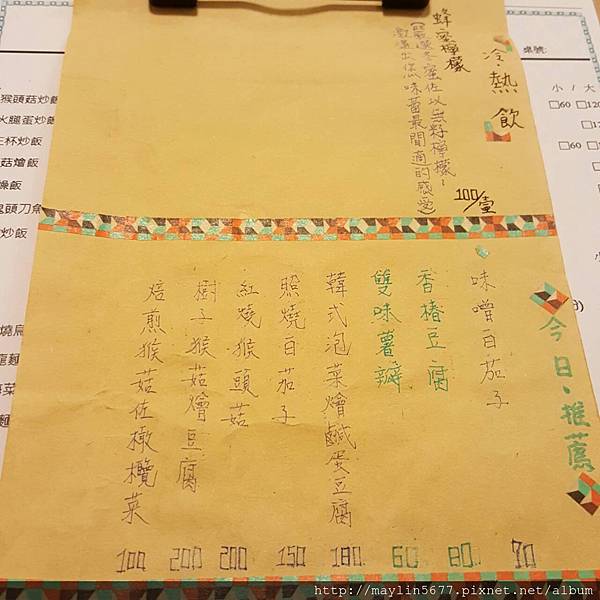 冷、熱飲
蜂蜜檸檬
(嚴選冬蜜佐以無籽檸檬,
激盪出您味蕾最閒適的感受)
100/壺
今日、推薦
味噌白茄子 70
香椿豆腐 80
雙味薯瓣 60
韓式泡菜燴鹹蛋豆腐 180
照燒白茄子 150
紅燒猴頭菇 200
樹子猴菇燴豆腐 200
焙煎猴菇佐橄欖菜 100
猴頭菇炒飯
火腿蛋炒飯
杯炒飯
菇燴飯
燥飯
鬼頭刀魚
炒飯
桌號:
小 / 大
□60 □120
□60
http://maylin5677.pixnet.net/album